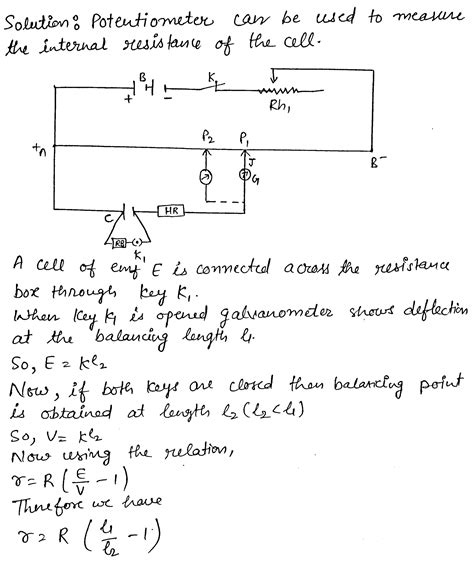 Solution: Potentiometer can be used to measure
the internal resistance of the cell.
B
K
+ -
Rh1
P2 P1
+A
J
B-
G
C
HR
RB
K1
A cell of emf E is connected across the resistance
box through key K1.
When key K1 is opened galvanometer shows deflection
at the balancing length l1.
So, E = kl2
Now, if both keys are closed then balancing point
is obtained at length l2 (l2 < l1)
So, V = kl2
Now using the relation,
r = R (E/V - 1)
Therefore we have
r = R (l1/l2 - 1)